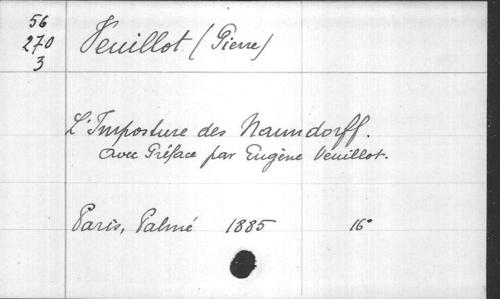 56
270
3
Veuillot (Pierre)
L'Imposture des Naundorff.
avec Préface par Eugène Veuillot.
Paris, Palmé 1885 16°